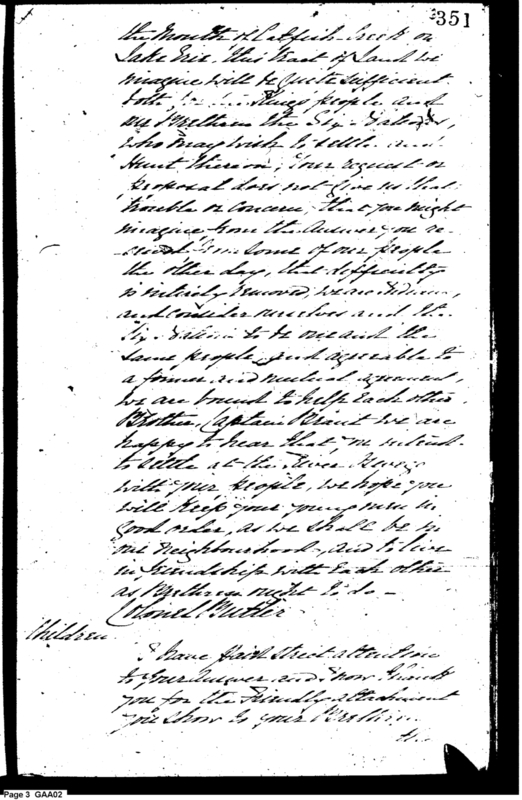 351
the Mouth of Catfish Creek on
Lake Erie, this tract of Land we
imagine will be quite sufficient
both King's people and
our Brethren the Six Nations,
who may wish to settle and
Hunt thereon, Your request or
proposal does not give us that
trouble or Concern, that you might
imagine from the Answer you re-
ceived from some of our people
the other day, that difficulty
is intirely removed, we are Indians,
and consider ourselves and the
Six Nations to be one and the
same people, and agreeable to
a former, and mutual agreement,
we are bound to help each other.
Brother, Captain Brant we are
happy to hear that you intend
to settle at the River
with your people, we hope you
will keep your young men in
good order, as we shall be in
one Neighbourhood, and to live
in friendship with each other
as Brethren ought to do —
Colonel Butler
Children
I have paid strict attention
to Your Answer and now thank
you for the Friendly attachment
you show to your Brethren
the
Page 3 GAA02